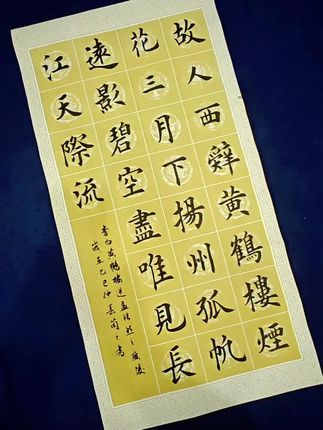 故人西辭黃鶴樓煙
花三月下揚州孤帆
遠影碧空盡唯見長
江天際流
李白黄鶴樓送孟浩然之廣陵
歲在乙巳仲春書